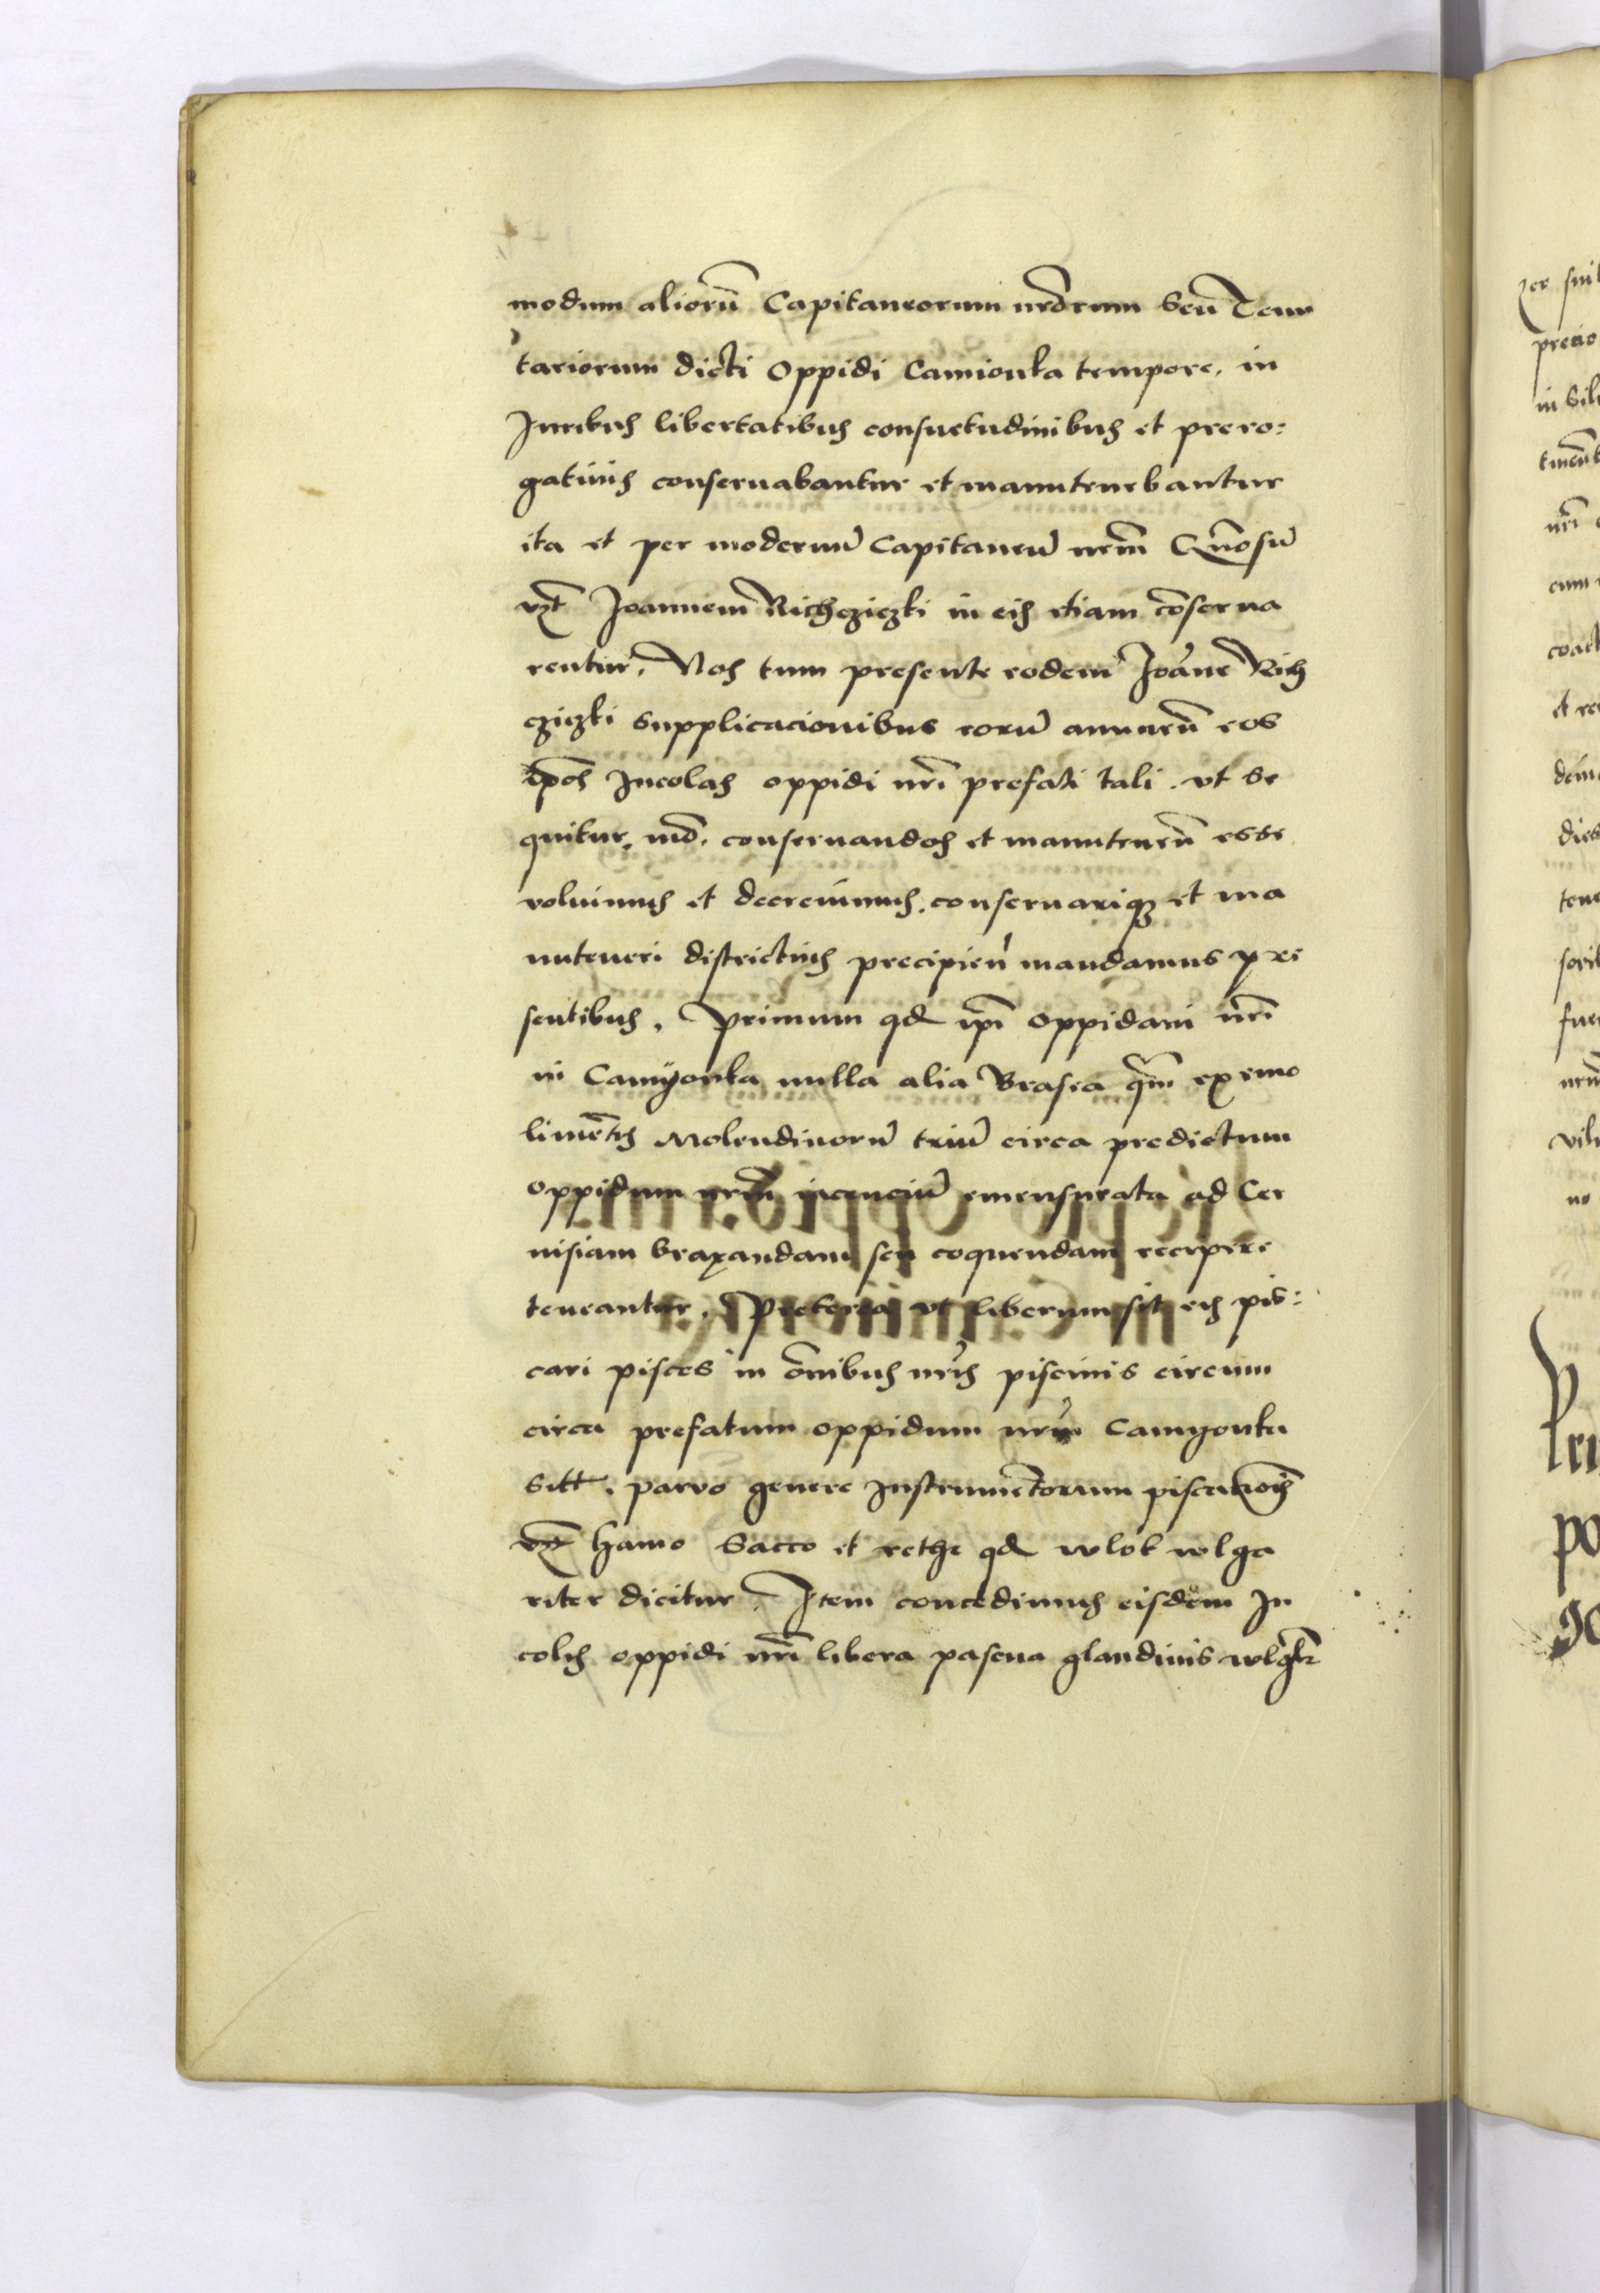 modum aliorū Capitaneorum nrōrum seu Tenu
tariorum dicti Oppidi Camionka tempore, in
Iuribus libertatibus consuetudinibus et prero:
gatiuis conseruabantur et manutenebantur
ita et per modernū Capitaneū nrm̄ Gn̄osū
vz̄ Joannem Richcziczki in eis etiam cōserua
rentur, Nos tum presente eodem Joāne Rich
cziczki supplicacionibus eorū annuen̄ eos
ip̄os Incolas oppidi nrī prefati tali vt se
quitur mō. conseruandos et manutenen̄ esse
voluimus et decreuimus, conseruarique et ma
nuteneri districtius precipien̄ mandamus pre
sentibus, Primum qd ip̄i oppidani nrī
in Camyonka nulla alia Brasea qm̄ ex emo
limētis Molendinorū triū circa predictum
oppidum nrm̄ iacenciū emensurata ad Cer
uisiam braxandam seu coquendam recipere
teneantur, Preterea vt liberum sit eis pis:
cari pisces in ōnibus nrīs piscinis circum
circa prefatum oppidum nrm̄ Camyonka
sitt. paruo genere Instrumētorum piscationis
vz̄ hamo sacco et rethe qd wlok wlga
riter dicitur, Item concedimus eisdem In
colis oppidi nrī libera pascua glandinis wlgr̄